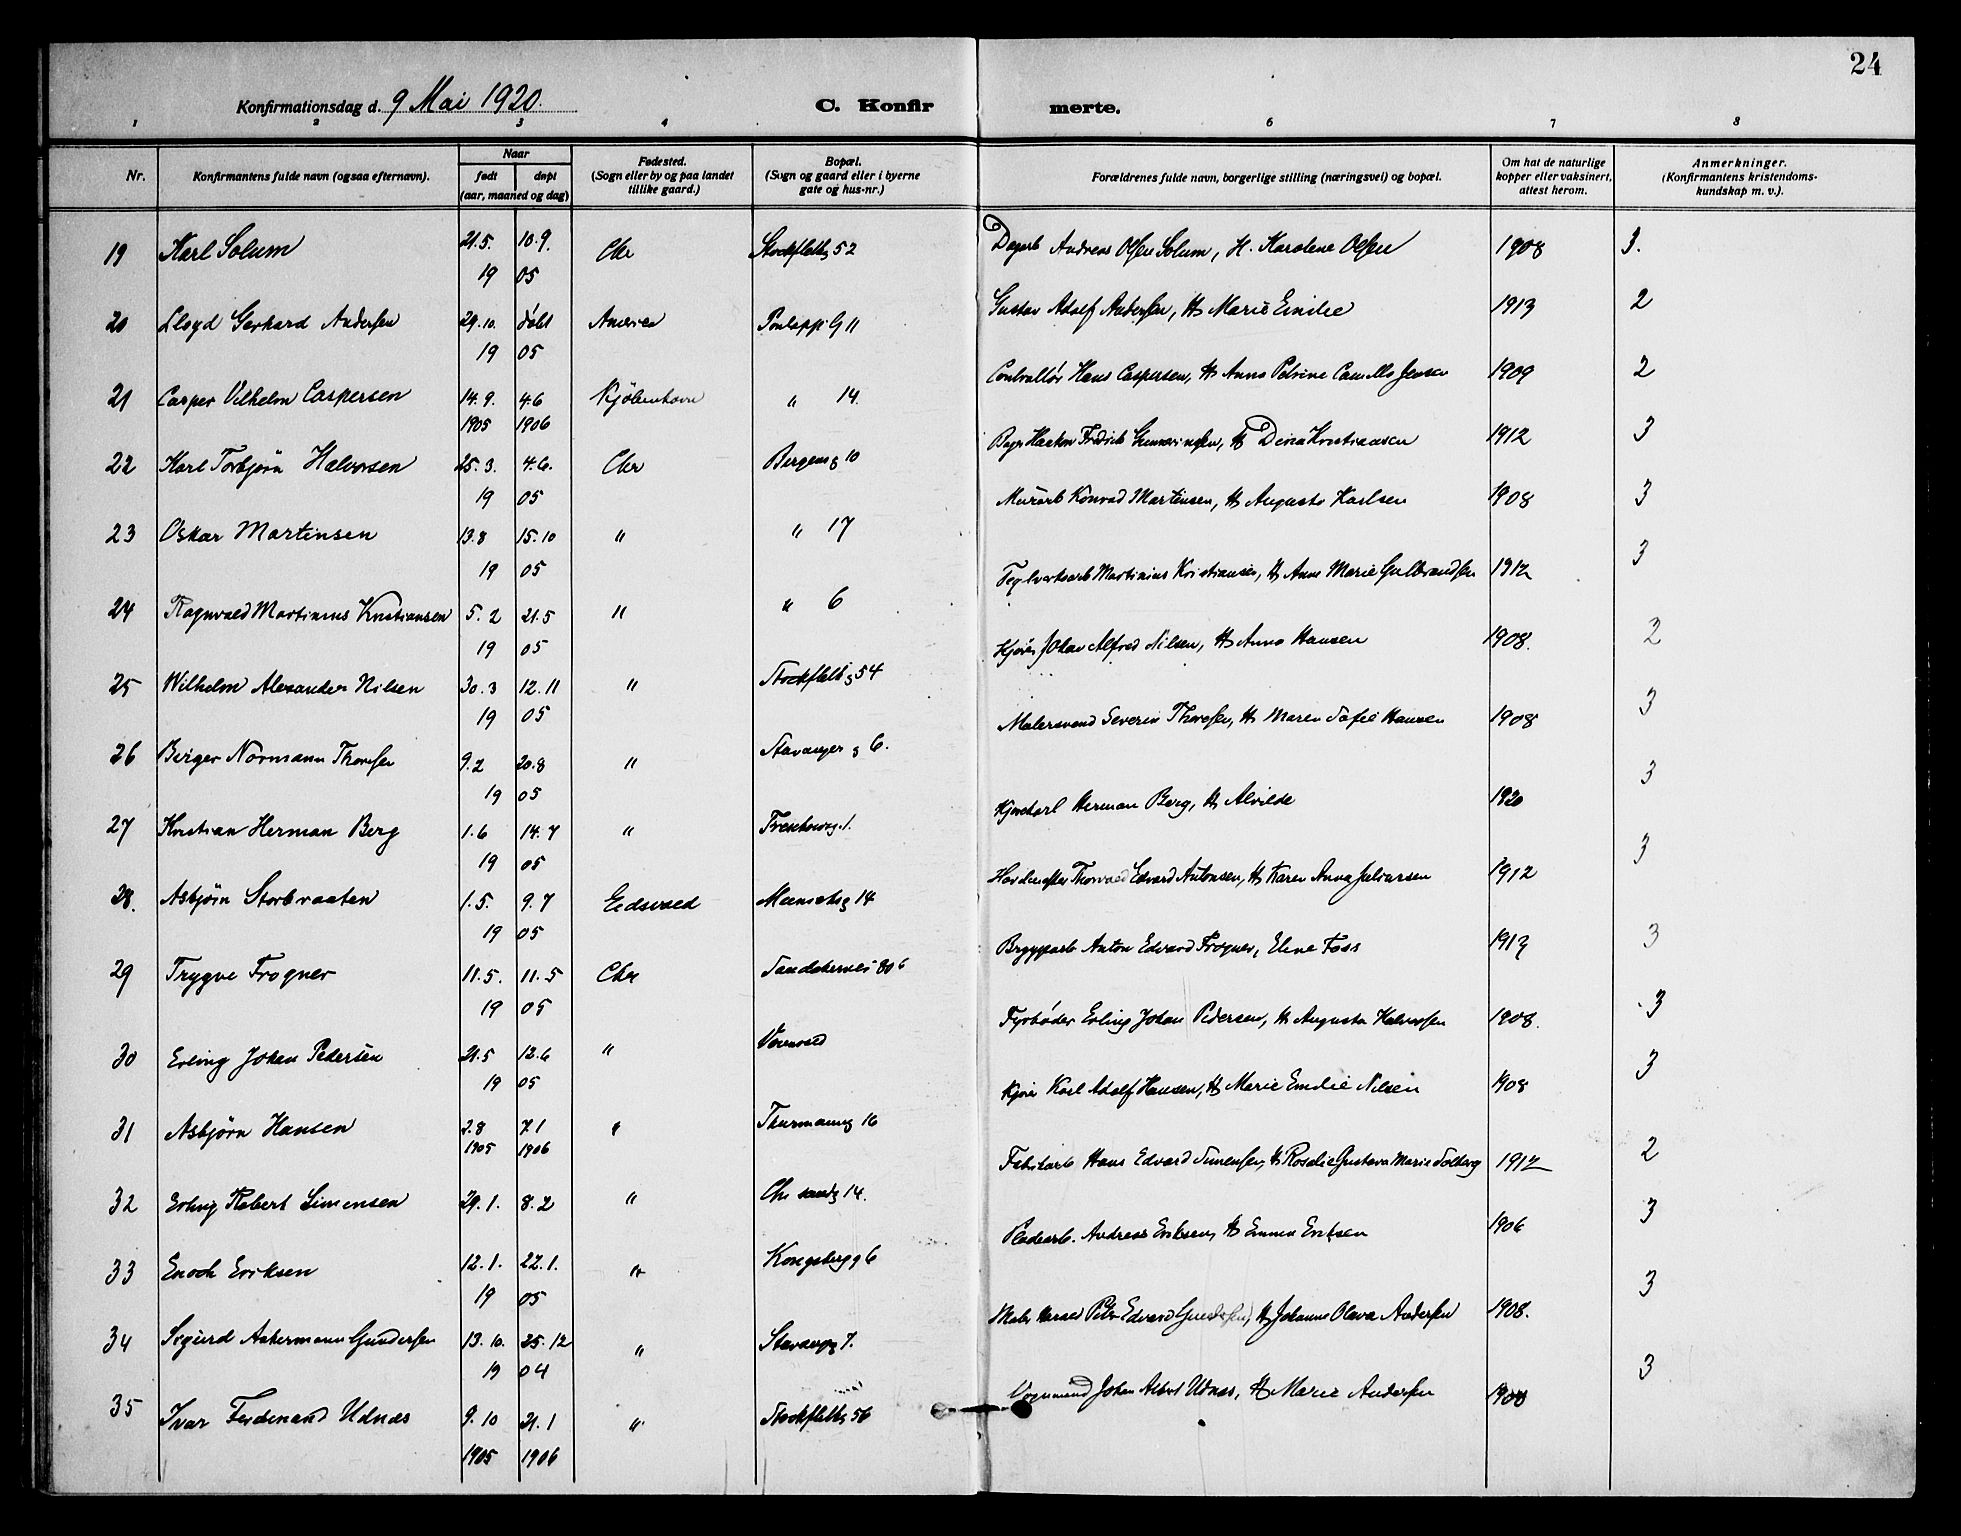 24
Konfirmationsdag d. 9 Mai 1920.
C. Konfirmerte.
1 2 3 4 6 7 8
Nr. Konfirmantens fulde navn (ogsaa efternavn). Naar født døpt (aar, maaned og dag) Fødested. (Sogn eller by og paa landet tillike gaard.) Bopæl. (Sogn og gaard eller i byerne gate og hus-nr.) Forældrenes fulde navn, borgerlige stilling (næringsvei) og bopæl. Om hat de naturlige kopper eller vaksinert, attest herom. Anmerkninger. (Konfirmantens kristendomskundskap m. v.).
19 Karl Solum 21.5. 10.9. 19 05 Chr Stockfletsg 52 Dagarb Andreas Olsen Solum, H. Karolene Olsen 1908 3.
20 Lloyd Gerhard Andersen 29.10. døbt 19 05 America G 11 Gustav Adolf Andersen, H Marie Emilie 1913 2
21 Casper Vilhelm Caspersen 14.9. 4.6 1905 1906 Kjøbenhavn " 14. Contrallør Hans Caspersen, H Anna Petrine Camilla Jensen 1909 2
22 Karl Torbjørn Halvorsen 25.3. 4.6. 19 05 Chr Bergensg 10 H Dina Kristiansen 1912 3
23 Oskar Martinsen 13.8 15.10 19 05 " " 17 Murarb Konrad Martinsen, H Augusta Karlsen 1908 3
24 Ragnvald Martinius Kristiansen 5.2 21.5 19 05 " " 6 Teglverksarb Martinius Kristiansen, H Anna Marie Gulbrandsen 1912 3
25 Wilhelm Alexander Nilsen 30.3 12.11 19 05 " Stockfletsg 54 Kjører Johan Alfred Nilsen, H Anna Hansen 1908. 2
26 Birger Normann Thoresen 9.2 20.8 19 05 " Stavanger g 6. Malersvend Severin Thoresen, H Maren Sofie Hansen 1908 3
27 Kristian Herman Berg 1.6 14.7 19 05 " Treschowsg. 1. Kjørekarl Herman Berg, H Alvilde 1920 3
28. Asbjørn Storbraaten 1.5. 9.7 19 05 Eidsvold 14 Thorvald Edvard Antonsen, H Karen Anna Halvorsen 1912 3
29 Trygve Frogner 11.5. 11.5 19 05 Chr Bryggarb Anton Edvard Frogner, Eline Foss 1913 3
30 Erling Johan Pedersen 21.5 12.6 19 05 " Fyrbøder Erling Johan Pedersen, H Augusta Halvorsen 1908. 3
31 Asbjørn Hansen 2.8 7.1 1905 1906 " Thurmannsg 16 Kjører Karl Adolf Hansen, H Marie Emilie Nilsen 1908 3
32 Erling Robert Simensen 29.1. 8.2 " Chr sandg 14. Fabrikarb Hans Edvard Simensen, H Roselie Gustava Marie Solberg 1912 2
33 Enoch Eriksen 12.1. 22.1. 19 05 " Kongsbergg 6 Pladearb. Andreas Eriksen, H Emma Eriksen 1906 3
34 Sigurd Ankermann Gundersen 13.10. 25.12 19 04 " Stavangg 7. Peter Edvard Gundersen, H Johanne Olava Andersen 1908. 3
35 Ivar Ferdinand Udnæs 9.10 21.1 1905 1906 " Stockfletsg 56 Vognmand Johan Albert Udnæs, H Marie Andersen 1908 3